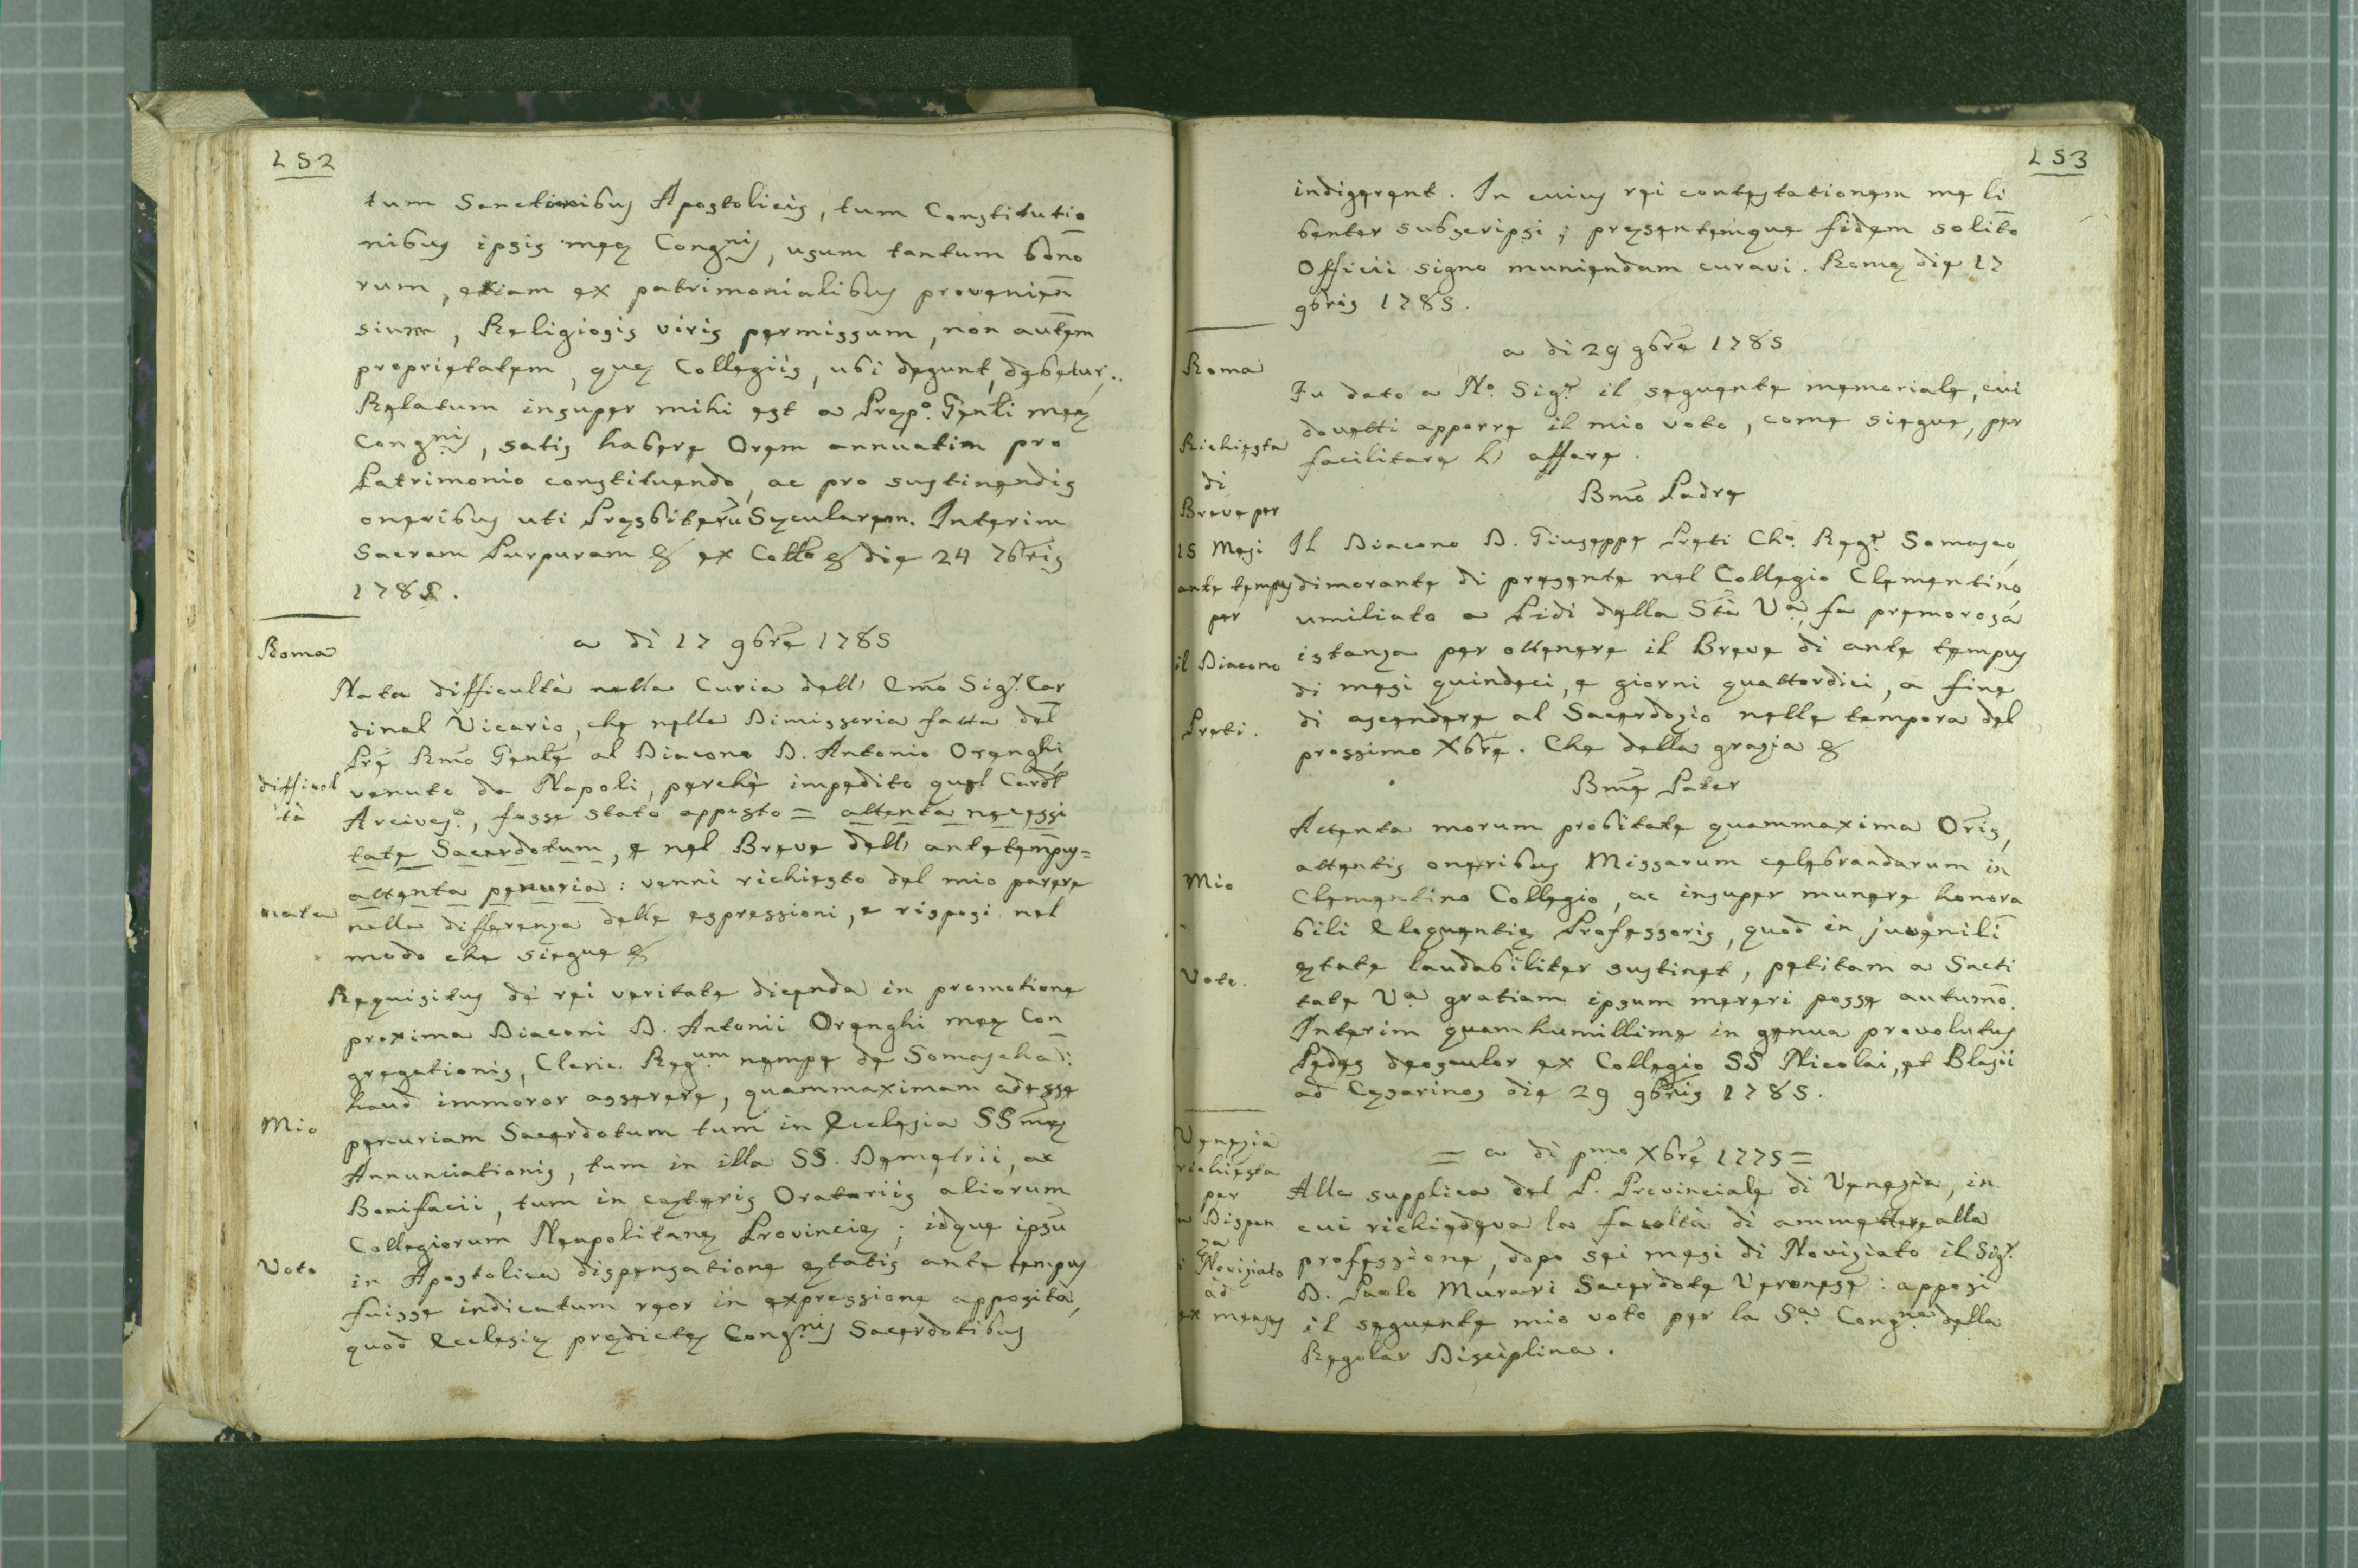 152
tum Sanctionibus Apostolicis, tum Constitutio
nibus ipsis meę Congnis, usum tantum bōno
rum, etiam ex patrimonialibus provenien̄
sium, Religiosis viris permissum, non aut̄em
proprietatem, quę Collegiis, ubi degunt, debetur..
Relatum insuper mihi est a Pręp.º Gen̄li meę
Congnis, satis habere Orem annuatim pro
Patrimonio constituendo, ac pro sustinendis
oneribus uti Pręsbiterū Sęcularem. Interim
Sacram Purpuram & ex Collo & die 24 7bris
1785.
Roma
a di 17 9bre 1785
Nata difficultà nella Curia dell' Emō Sigr. Car
dinal Vicario, che nella Dimissoria fatta del
Prē Rmō Genle al Diacono D. Antonio Orenghi,
difficol
tà
venuto da Napoli, perchè impedito quel Cardl
Arcives.º, fosse stato apposto = attenta necessi
tate Sacerdotum, e nel Breve dell' antetempus=
attenta penuria: venni richiesto del mio parere
nata
nella differenza delle espressioni, e risposi nel
modo che siegue &
Requisitus de rei veritate dicenda in promotione
proxima Diaconi D. Antonii Orenghi meę Con
gregationis, Cleric. Regum nempe de Somascha:
haud immoror asserere, quammaximam adesse
Mio
penuriam Sacerdotum tum in Ecclesia SSmę
Annunciationis, tum in illa SS. Demetrii, ac
Bonifacii, tum in cęteris Oratoriis aliorum
Collegiorum Neapolitanę Provincię; idque ipsū
Voto
in Apostolica dispensatione ętatis ante tempus
fuisse indicatum reor in expressione apposita,
quod Ecclesię prędictę Congnis Sacerdotibus
153
indigerent. In cuius rei contestationem me li
benter subscripsi; pręsentemque fidem solito
Officii signo muniendam curavi. Romę die 17
9bris 1785.
a di 29 9bre 1785
Roma
Fu dato a N.º Sigr. il seguente memoriale, cui
Richiesta
dovetti apporre il mio voto, come siegue, per
facilitare l' affare.
di
Bmō Padre
Breve per
15 Mesi
Il Diacono D. Giuseppe Preti Ch.º Regr. Somasco,
ante tempus
dimorante di presente nel Collegio Clementino
per
umiliato a Piedi della Stà Va, fa premorosa
il Diacono
istanza per ottenere il Breve di ante tempus
di mesi quindeci, e giorni quattordici, a fine
Preti.
di ascendere al Sacerdozio nelle tempora del
prossimo Xbre. Che della grazia &
Bmē Pater
Actenta morum probitate quammaxima Oris,
attentis oneribus Missarum celebrandarum in
Mio
Clementino Collegio, ac insuper munere honora
bili Eloquentię Professoris, quod in juvenili
Voto.
ętate laudabiliter sustinet, petitam a Sacti
tate Va gratiam ipsum mereri posse autumo.
Interim quam humillime in genua provolutus
Pedes deosculor ex Collegio SS Nicolai, et Blasii
ad Cęsarinos die 29 9bris 1785.
Venezia
= a di pmo Xbre 1775 =
richiesta
per
Alla supplica del P. Provinciale di Venezia, in
a Dispen
za
cui richiedeva la facoltà di ammettere alla
i Noviziato
professione, dopo sei mesi di Noviziato il Sigr.
ad
D. Paolo Murari Sacerdote Veronese: apposi
ex menses
il seguente mio voto per la Sa Congne della
Regolar Disciplina.